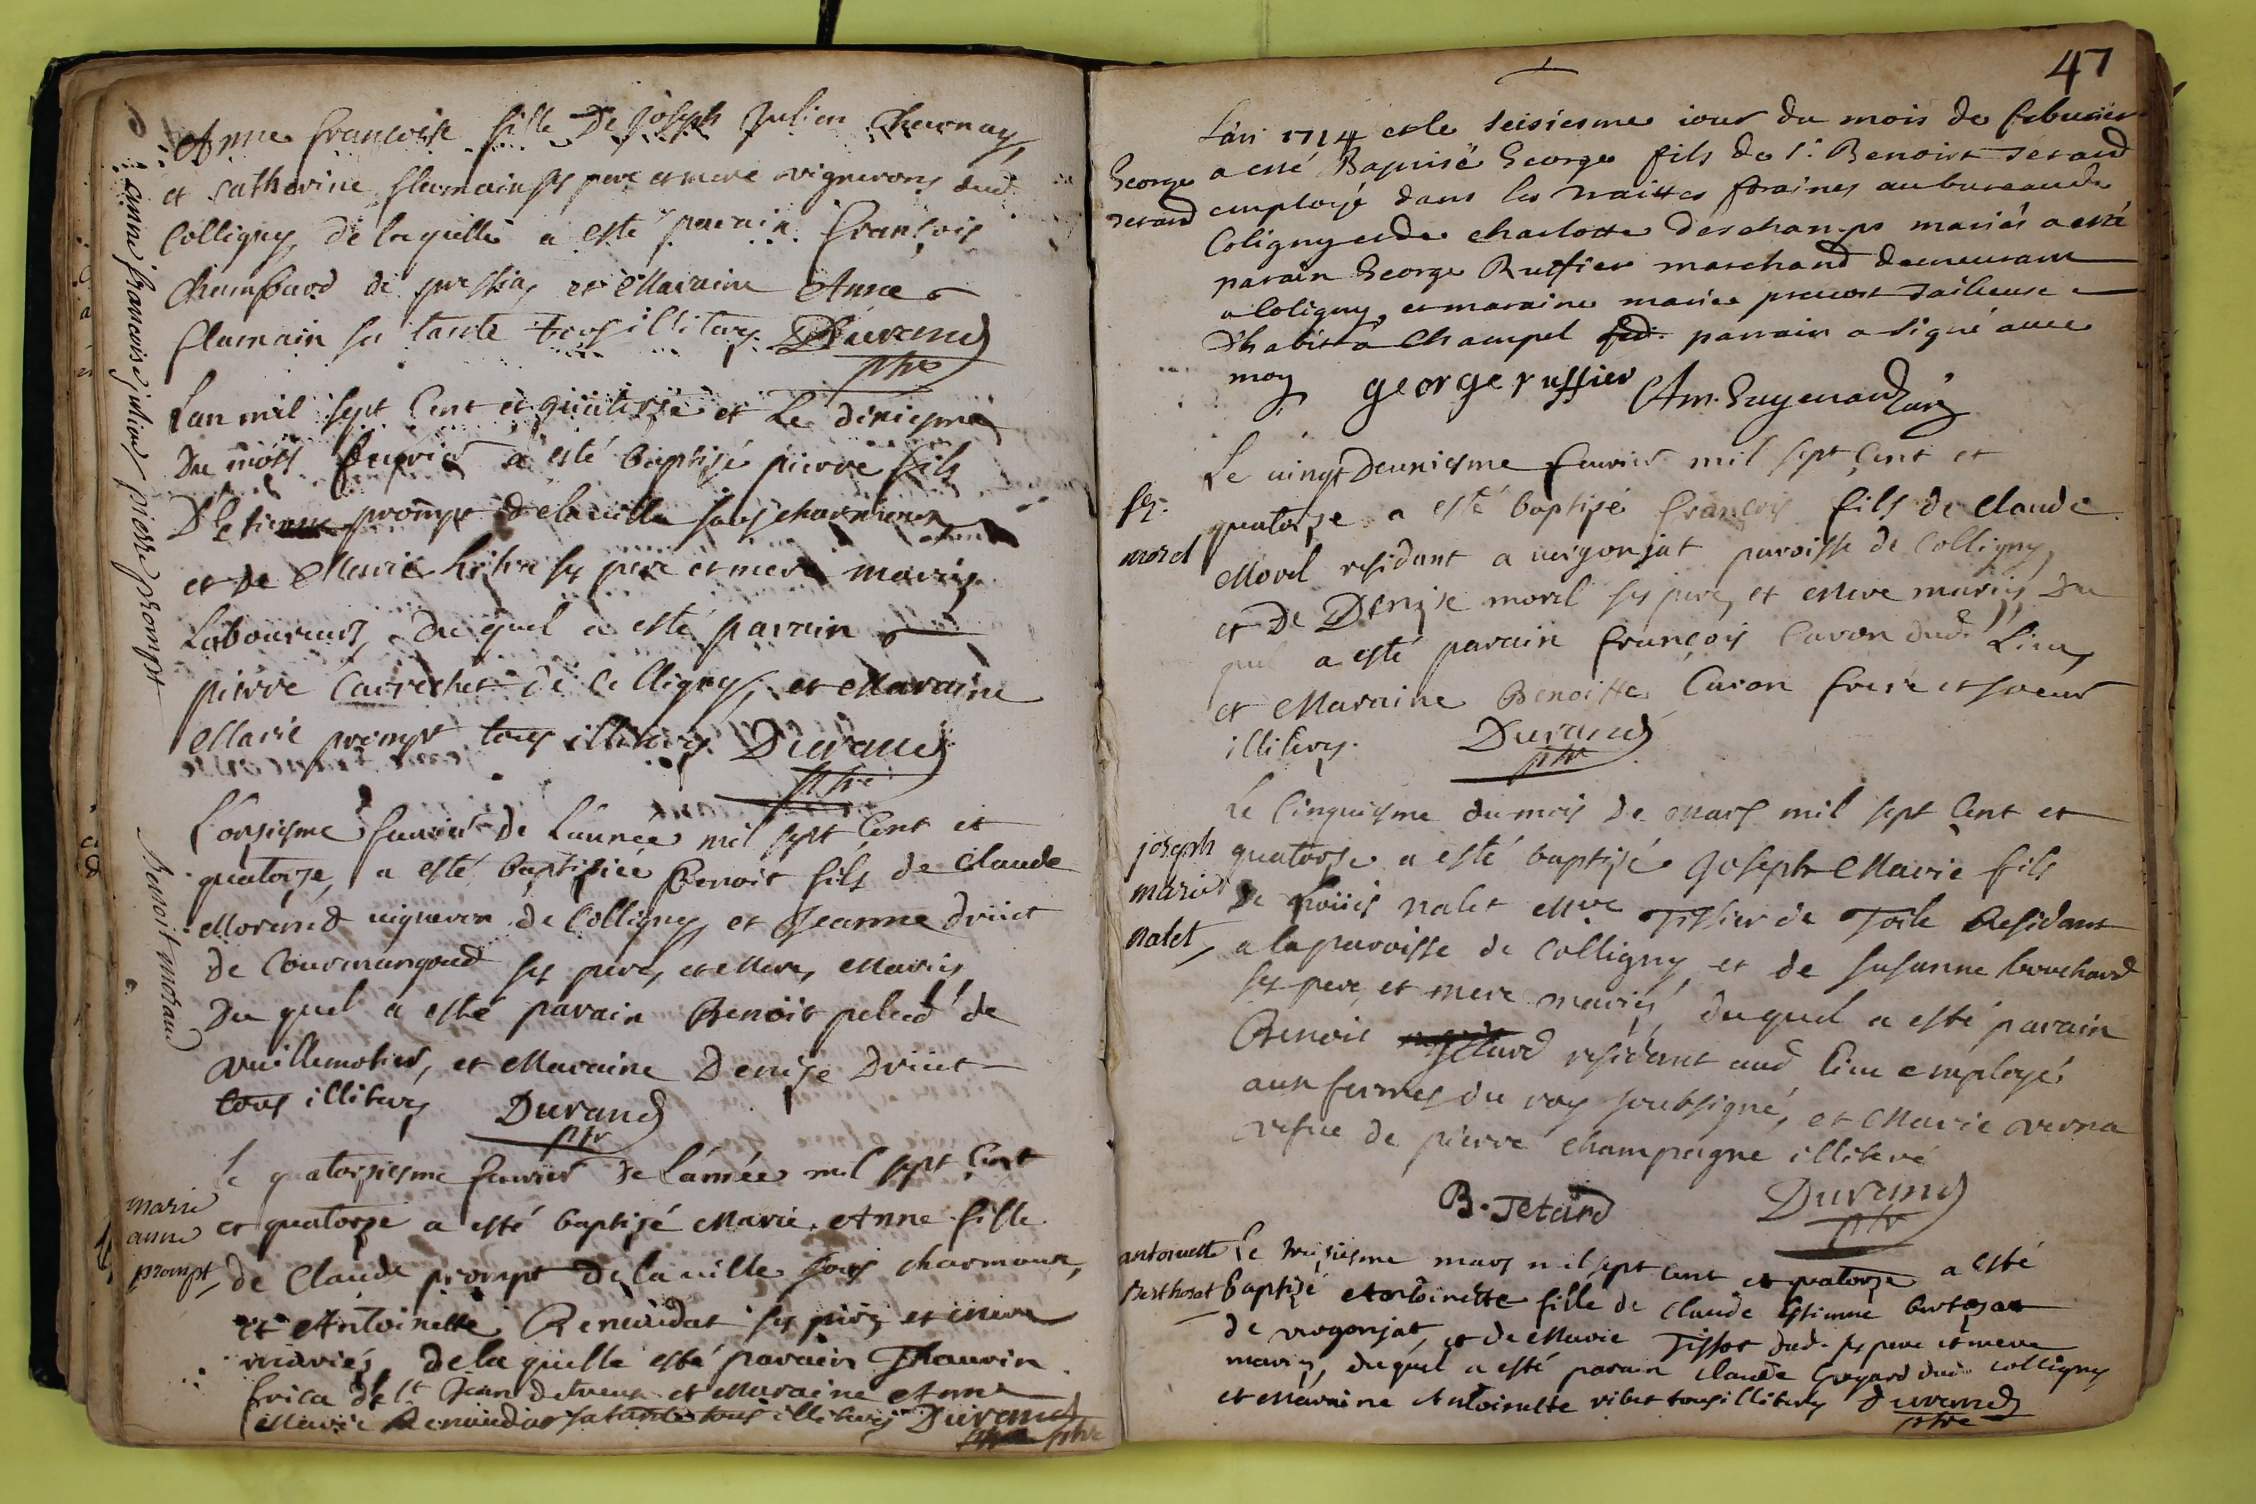 Anne francoise fille De joseph julien
et Catherine flamain ses pere et mere vignerons dud.
Colligny, de laquelle a esté parain François
Chambard de pressia, et Maraine Anne
flamain sa tante tous illiterés Durand
ptre
anne francoise julien
L'an mil sept Cent et quatorse et Le dixiesme
Du mois feuvrier a esté baptisé pierre fils
D'Etienne prompt de la ville sous charmoux
et De Marie ses pere et mere mariés
Laboureurs, Du quel a esté parrain
pierre Carrechet de Colligny, et Maraine
Marie prompt tous illiterés Durand
ptre
pierre prompt
L'onsiesme feuvrier de L'année mil sept Cent et
quatorze, a esté baptisiée Benoit fils de Claude
Morand vigneron de Colligny et Jeanne druet
de Courmangoud ses pere, et Mere, Mariés
Du quel a esté parain Benoit pelud de
vuillemotier, et Maraine Denise Druet
tous illiterés Durand
ptr
benoit moran
Le quatorsiesme feuvrier de L'année mil sept Cent
et quatorze a esté baptisé Marie Anne fille
de Claude prompt De la ville sous charmoux,
et Antoinette Renaudat ses pere, et mere
mariés, de la quelle esté parain
de St Jean detreux et Maraine Anne
Marie Renaudat sa tante tous illiterés Durand
ptre
marie
anne
prompt
47
L'an 1714 et le seisiesme iour du mois de feburier
a esté Baptisé George fils de Sr. Benoist Jetard
employé dans les traittes foraines au bureau de
Coligny et de charlotte Deschamps mariés a esté
parain George Ruffier marchand demeurant
a Coligny, et maraine mariee preuost tailleuse
D'habit a Champel led. parrain a signé auec
moy george ruffier Am. Guynard curé
George
Jetard
Le vingt Deuxiesme feuvrier mil sept Cent et
quatorze a esté baptisé françois fils de Claude
Morel residant a vergonjat paroisse de Colligny,
et De Denise morel ses pere, et Mere mariés Du
quel a esté parain François Caron dud. Lieu,
et Maraine Benoitte Caron frere et soeur
illiterés. Durand
ptr
fs.
morel
Le Cinquiesme du mois de Mars mil sept Cent et
quatorze a esté baptisé Joseph Marie fils
De Loüis nalet Mre Tissier de Toile Residant
a la paroisse de Colligny et de susanne bouchard
ses pere, et mere mariés, du quel a esté parain
Benoit Jetard residant aud Lieu employé
aux fermes du roy soubsigné, et Marie verna
vefue de pierre champagne illiteré
B. Jetard Durand
ptr
joseph
marie
nalet
Le tresiesme mars mil sept cent et quatorze a esté
baptisé Antoinette fille de Claude Estienne bertozat
de vergonjat, et de Marie Tissot dud. ses pere et mere
mariés, duquel a esté parain Claude Goyard dud Colligny
et Maraine Antoinette vibet tous illiterés Durand
ptre
antoinette
Berthosat